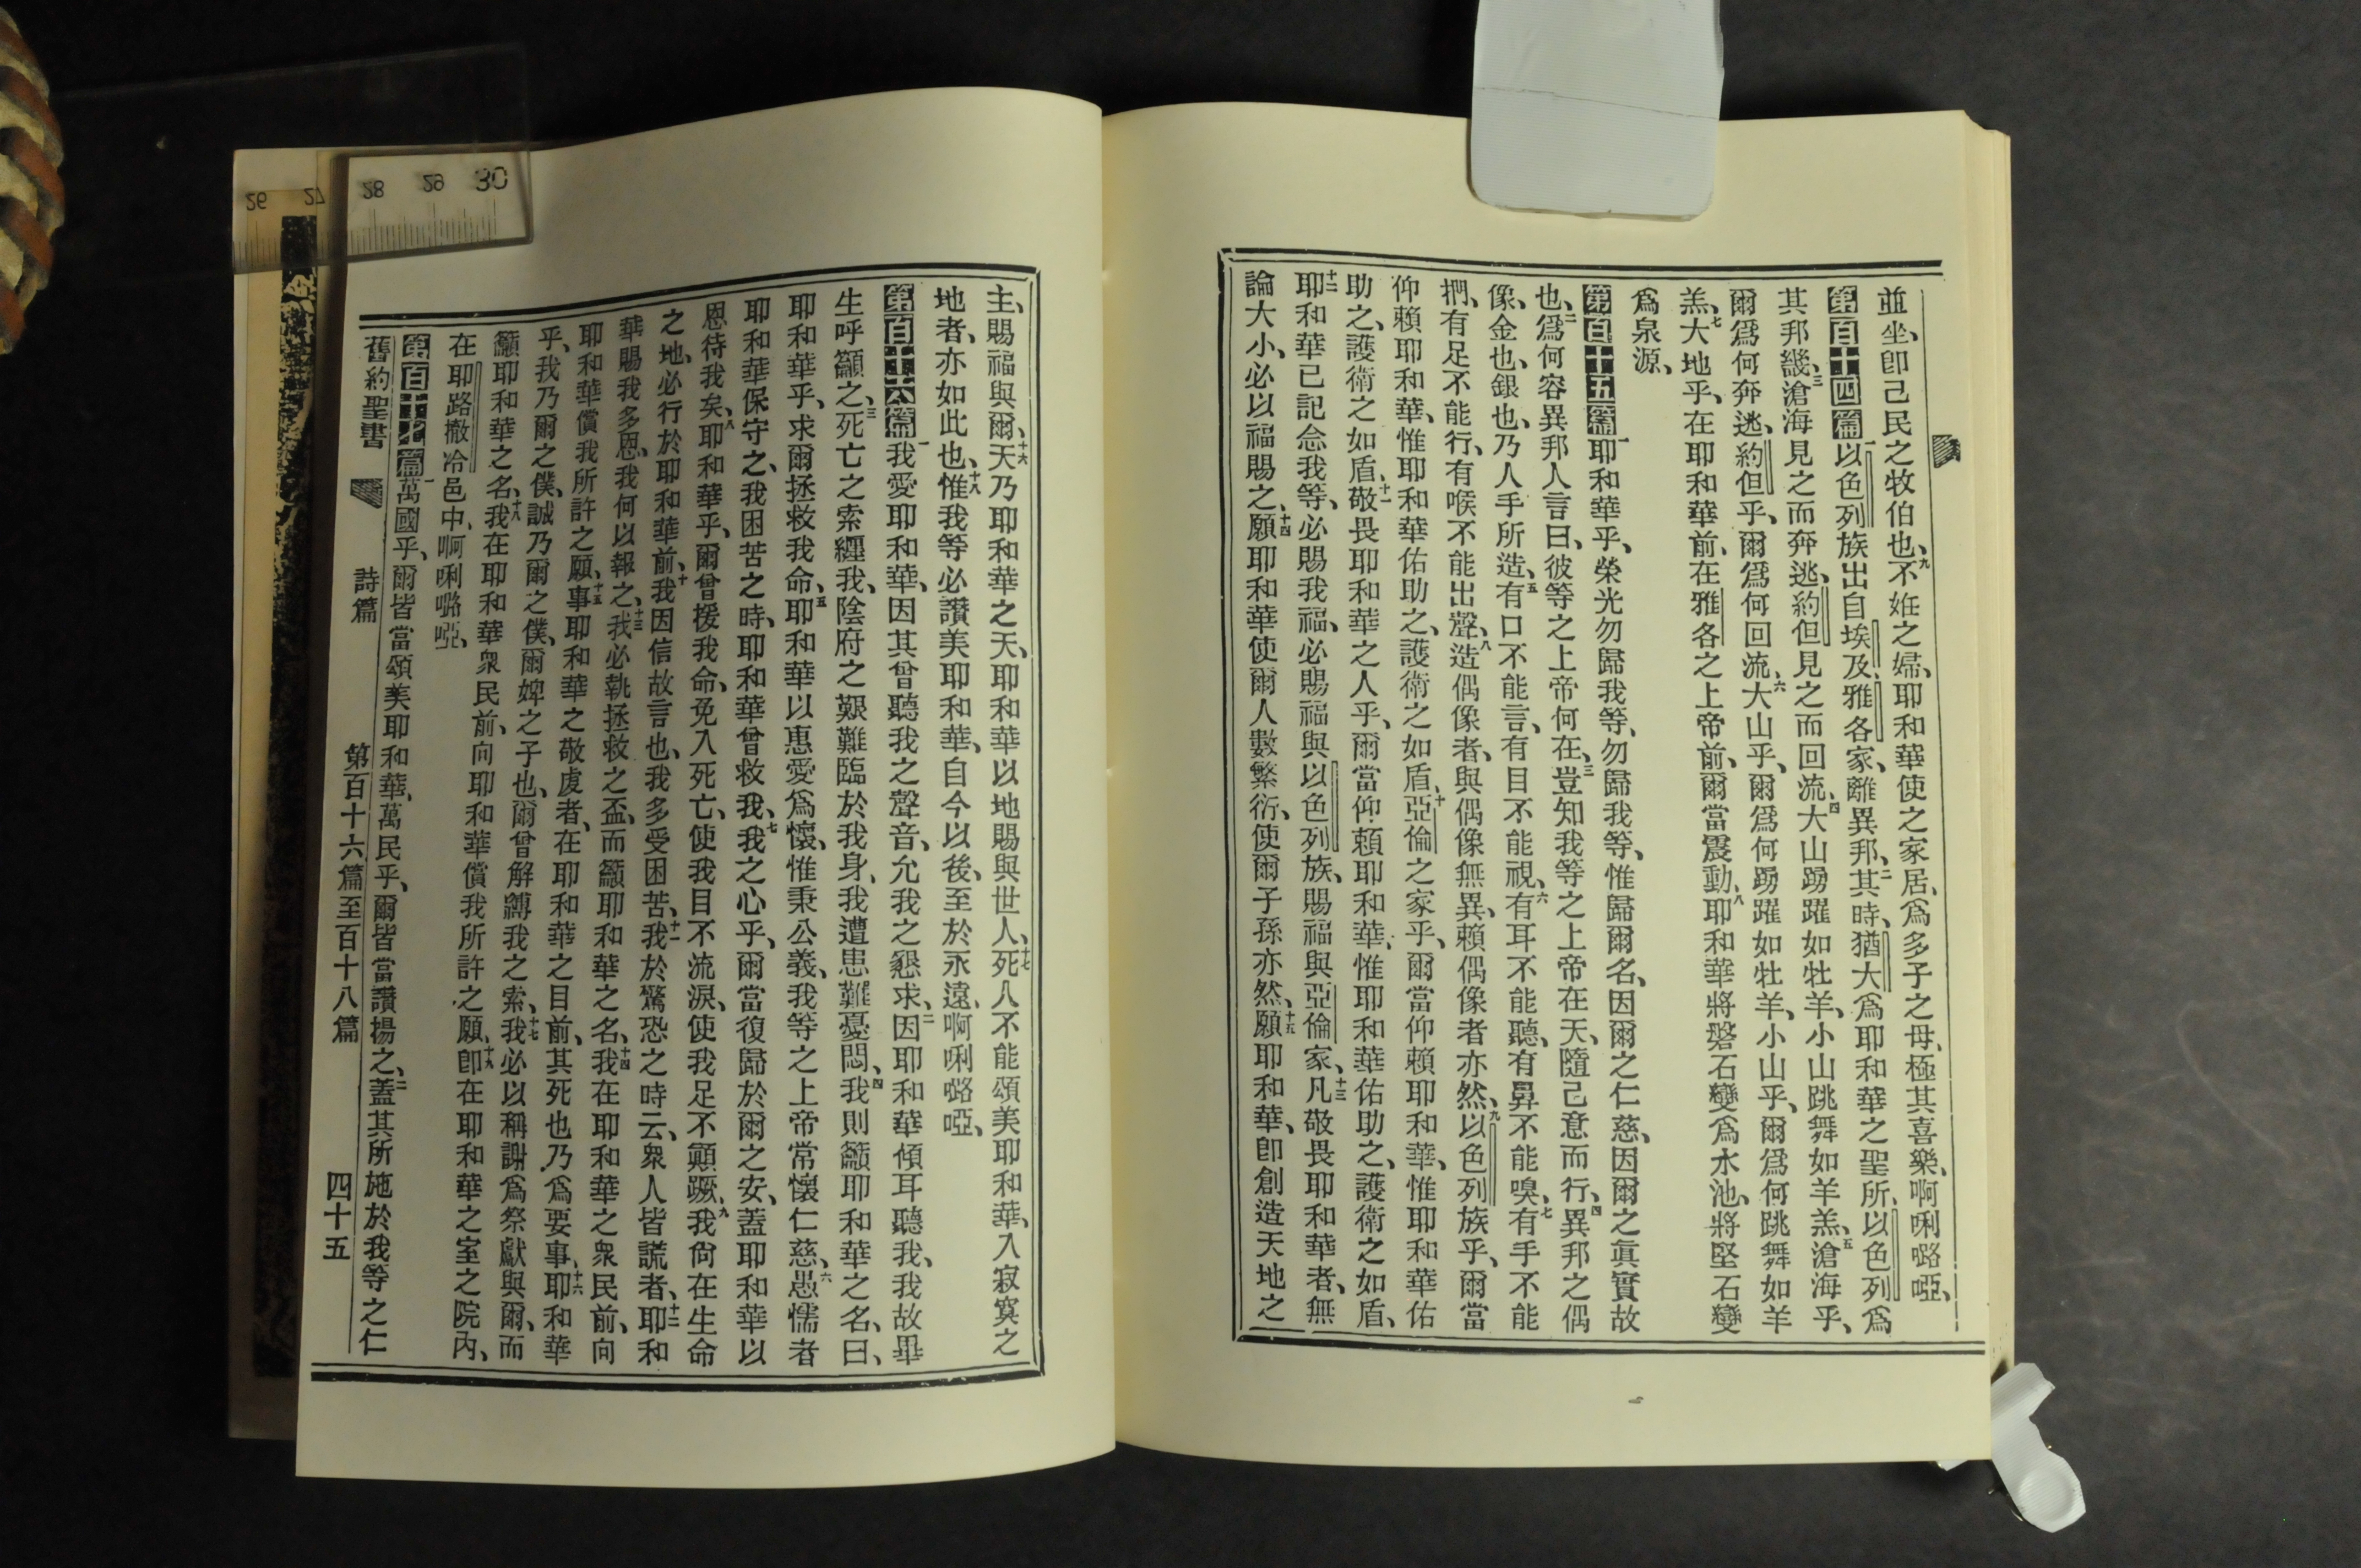 並坐、卽己民之牧伯也、九不姙之婦、耶和華使之家居、爲多子之母、極其喜樂、啊唎嚕啞、
第百十四篇一以色列族出自埃及、雅各家、離異邦、二其時、猶大爲耶和華之聖所、以色列爲
其邦畿、三滄海見之而奔逃、約但見之而回流、四大山踴躍如牡羊、小山跳舞如羊羔、五滄海乎、
爾爲何奔逃、約但乎、爾爲何回流、六大山乎、爾爲何踴躍如牡羊、小山乎、爾爲何跳舞如羊
羔、七大地乎、在耶和華前、在雅各之上帝前、爾當震動、八耶和華將磐石變爲水池、將堅石變
爲泉源、
第百十五篇一耶和華乎、榮光勿歸我等、勿歸我等、惟歸爾名、因爾之仁慈、因爾之眞實故
也、二爲何容異邦人言曰、彼等之上帝何在、三豈知我等之上帝在天、隨己意而行、四異邦之偶
像、金也、銀也、乃人手所造、五有口不能言、有目不能視、六有耳不能聽、有鼻不能嗅、七有手不能
捫、有足不能行、有喉不能出聲、八造偶像者、與偶像無異、賴偶像者亦然、九以色列族乎、爾當
仰賴耶和華、惟耶和華佑助之、護衛之如盾、十亞倫之家乎、爾當仰賴耶和華、惟耶和華佑
助之、護衛之如盾、十一敬畏耶和華之人乎、爾當仰賴耶和華、惟耶和華佑助之、護衛之如盾、
十二耶和華已記念我等、必賜我福、必賜福與以色列族、賜福與亞倫家、十三凡敬畏耶和華者、無
論大小、必以福賜之、十四願耶和華使爾人數繁衍、使爾子孫亦然、十五願耶和華、卽創造天地之
主、賜福與爾、十六天乃耶和華之天、耶和華以地賜與世人、十七死人不能頌美耶和華、入寂寞之
地者、亦如此也、十八惟我等必讚美耶和華、自今以後、至於永遠、啊唎嚕啞、
第百十六篇一我愛耶和華、因其曾聽我之聲音、允我之懇求、二因耶和華傾耳聽我、我故畢
生呼籲之、三死亡之索纒我、陰府之艱難臨於我身、我遭患難憂悶、四我則籲耶和華之名、曰、
耶和華乎、求爾拯救我命、五耶和華以惠愛爲懷、惟秉公義、我等之上帝常懷仁慈、六愚懦者
耶和華保守之、我困苦之時、耶和華曾救我、七我之心乎、爾當復歸於爾之安、蓋耶和華以
恩待我矣、八耶和華乎、爾曾援我命、免入死亡、使我目不流淚、使我足不顚蹶、九我尙在生命
之地、必行於耶和華前、十我因信故言也、我多受困苦、十一我於驚恐之時云、衆人皆謊者、十二耶和
華賜我多恩、我何以報之、十三我必執拯救之盃、而籲耶和華之名、十四我在耶和華之衆民前、向
耶和華償我所許之願、十五事耶和華之敬虔者、在耶和華之目前、其死也乃爲要事、十六耶和華
乎、我乃爾之僕、誠乃爾之僕、爾婢之子也、爾曾解縛我之索、十七我必以稱謝爲祭獻與爾、而
籲耶和華之名、十八我在耶和華衆民前、向耶和華償我所許之願、十九卽在耶和華之室之院內、
在耶路撒冷邑中、啊唎嚕啞、
第百十七篇一萬國乎、爾皆當頌美耶和華、萬民乎、爾皆當讚揚之、二蓋其所施於我等之仁
舊約聖書 詩篇 第百十六篇至百十八篇 四十五
26 27 28 29 30